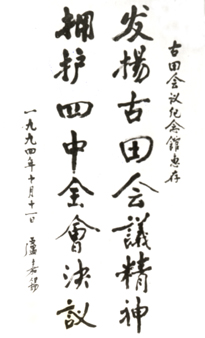 古田会议纪念馆惠存
发揚古田会議精神
拥护四中全會决议
一九九四年十月十一日